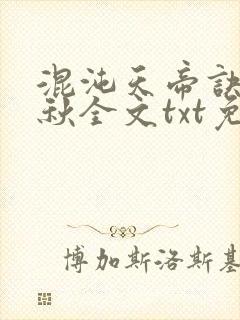 混沌天帝诀
秋全文txt免
博加斯洛斯基